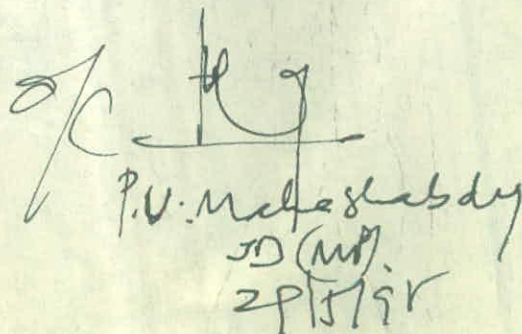 O/C
P.V. Maheshabdy
JD (MP)
29/5/98